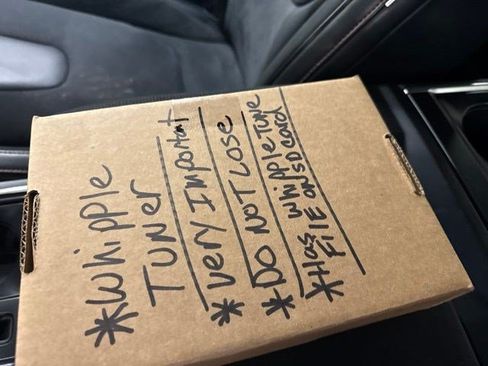 *Whipple
TUNER
*Very Important
*DO NOT LOSE
*Has Whipple TUNE
FILE ON SD CARD